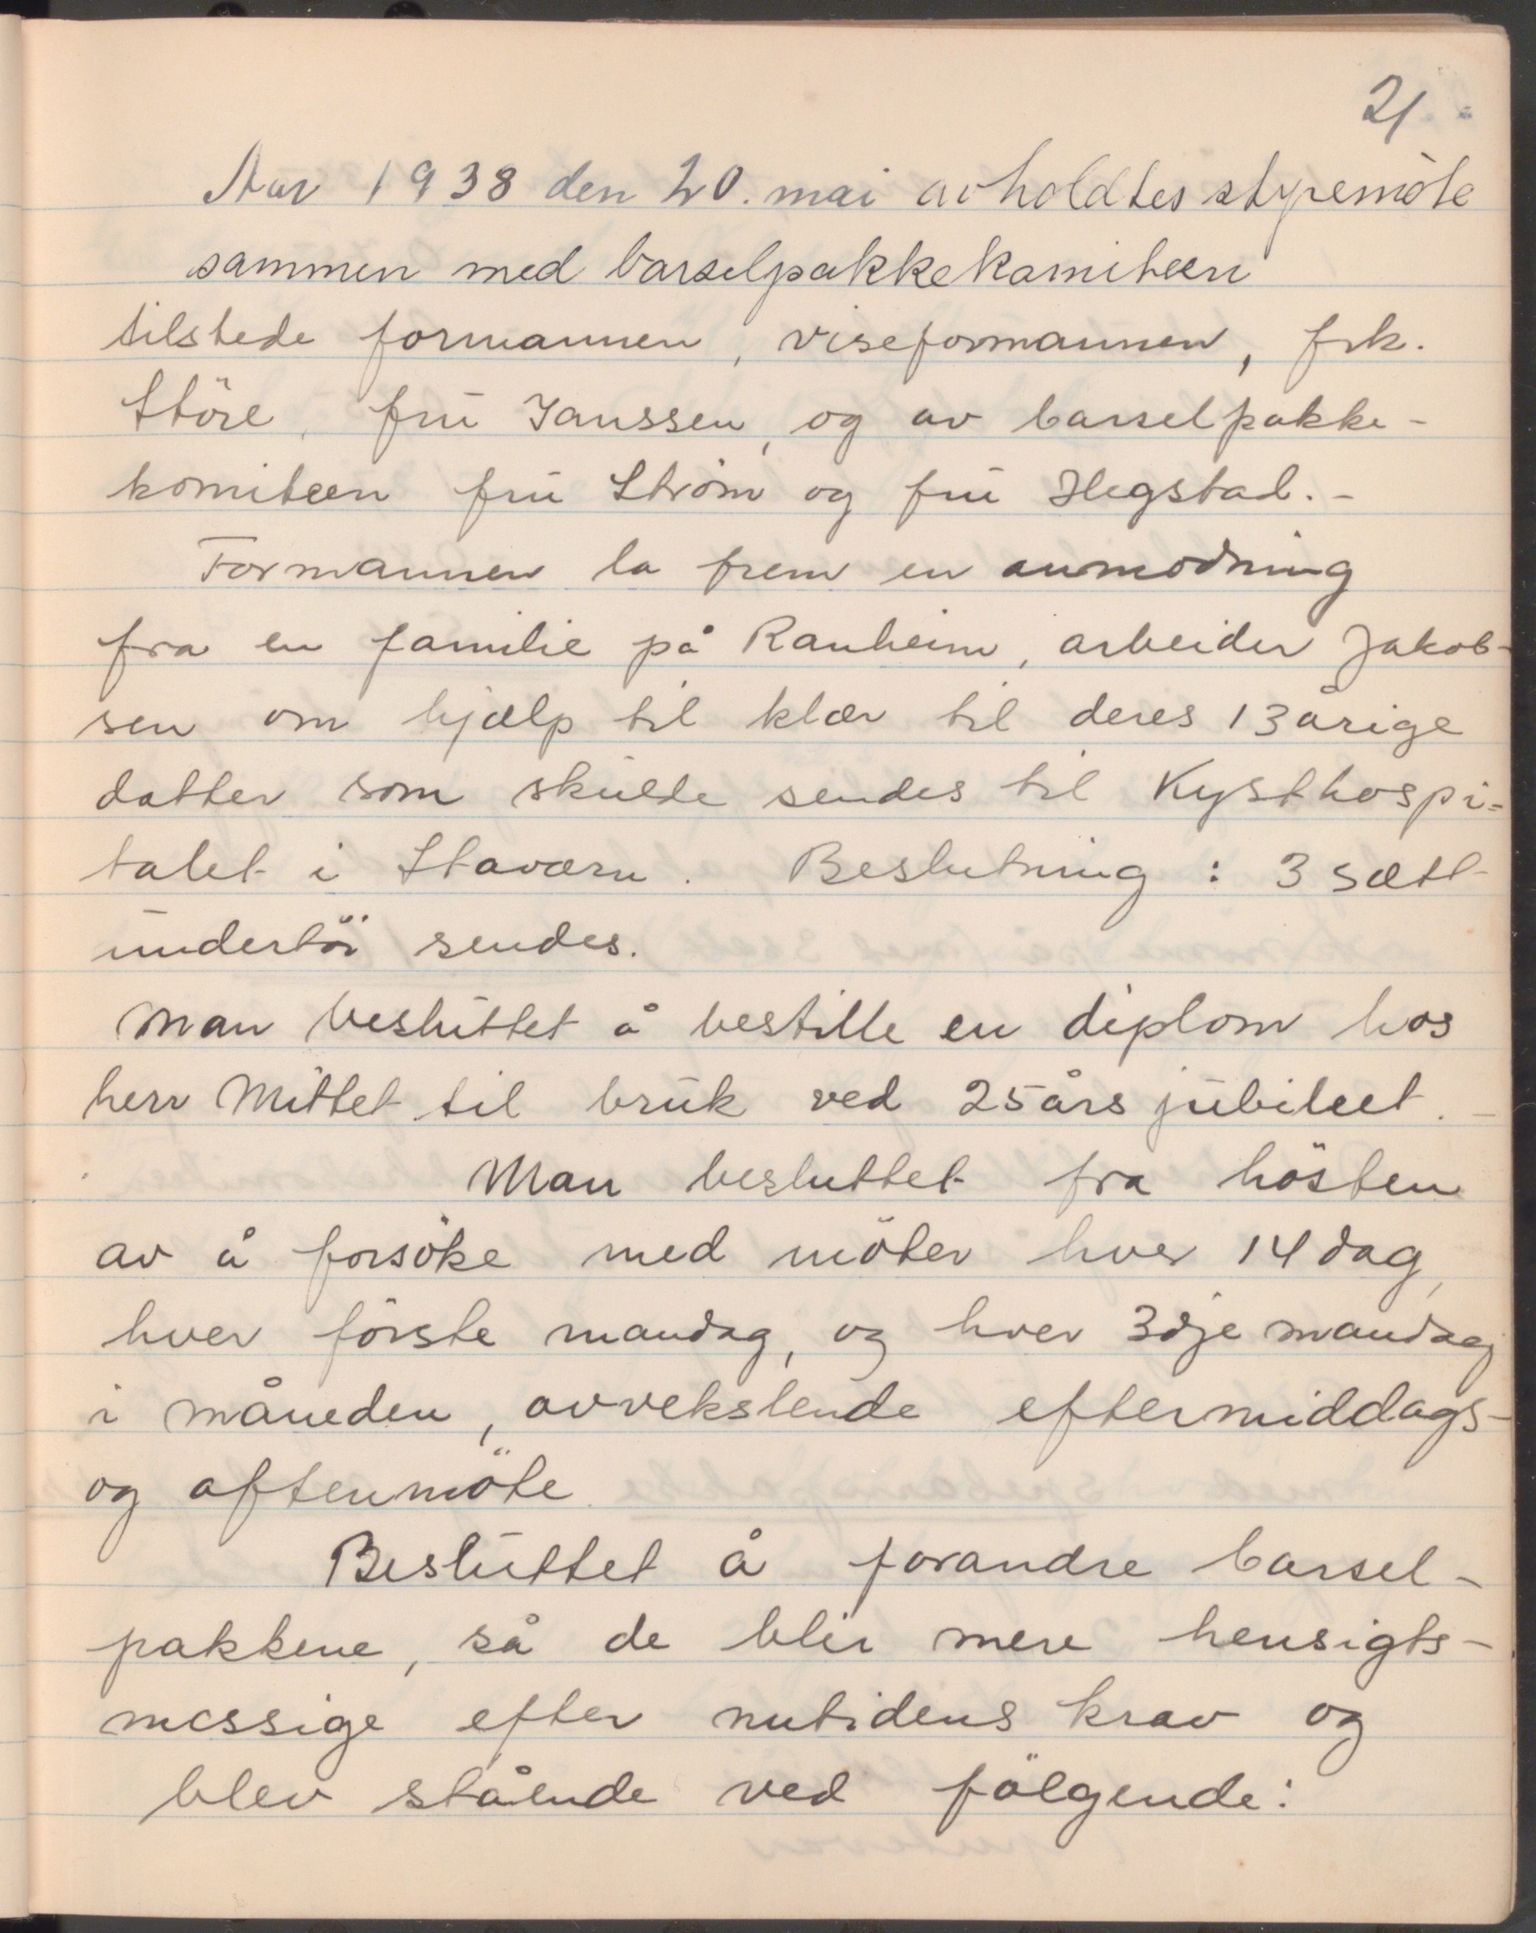 21.
Aar 1938 den 20. mai avholdtes styremöte
sammen med barselpakkekomiteen
tilstede formannen, viseformannen, frk.
Störe, frú Janssen, og av barselpakke-
komiteen frú Ström og frú Hegstad.-
Formannen la frem en anmodning
fra en familie på Ranheim, arbeider Jakob-
sen om hjælp til klær til deres 13årige
datter som skúlde sendes til Kysthospi-
talet i Staværn. Beslutning: 3 sætt
úndertöi sendes.
Man beslúttet å bestille en diplom hos
herr Mittet til brúk ved 25års júbileet.-
Man besluttet fra hösten
av å forsöke med möter hver 14 dag,
hver förste mandag, og hver 3dje mandag
i måneden, avvekslende eftermiddags-
og aftenmöte.
Beslúttet å forandre barsel-
pakkene, så de blir mere hensigts-
messige efter nutidens krav og
blev stående ved fölgende: